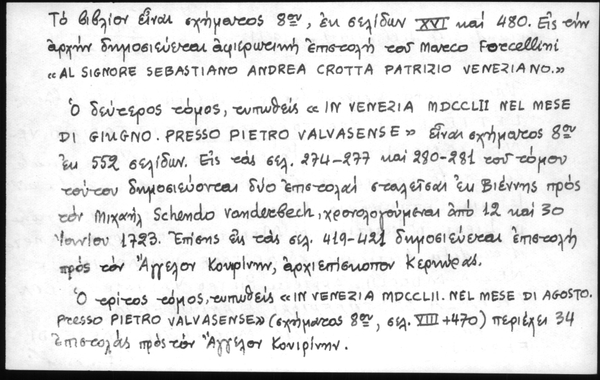 Τό βιβλίον εἶναι σχήματος 8ου, ἐκ σελίδων XVI καί 480. Εἰς τήν
ἀρχήν δημοσιεύεται ἀφιερωτική ἐπιστολή τοῦ Marco Forcellini
«AL SIGNORE SEBASTIANO ANDREA CROTTA PATRIZIO VENEZIANO.»
Ὁ δεύτερος τόμος, τυπωθείς «IN VENEZIA MDCCLII NEL MESE
DI GIUGNO. PRESSO PIETRO VALVASENSE» εἶναι σχήματος 8ου
ἐκ 552 σελίδων. Εἰς τάς σελ. 274-277 καί 280-281 τοῦ τόμου
τούτου δημοσιεύονται δύο ἐπιστολαί σταλεῖσαι ἐκ Βιέννης πρός
τόν Μιχαήλ Schendo Vanderbech, χρονολογούμεναι ἀπό 12 καί 30
Ἰουνίου 1723. Ἐπίσης εἰς τάς σελ. 419-421 δημοσιεύεται ἐπιστολή
πρός τόν Ἄγγελον Κουιρίνην, ἀρχιεπίσκοπον Κερκύρας.
Ὁ τρίτος τόμος, τυπωθείς «IN VENEZIA MDCCLII. NEL MESE DI AGOSTO.
PRESSO PIETRO VALVASENSE» (σχήματος 8ου, σελ. VIII + 470) περιέχει 34
ἐπιστολάς πρός τόν Ἄγγελον Κουιρίνην.